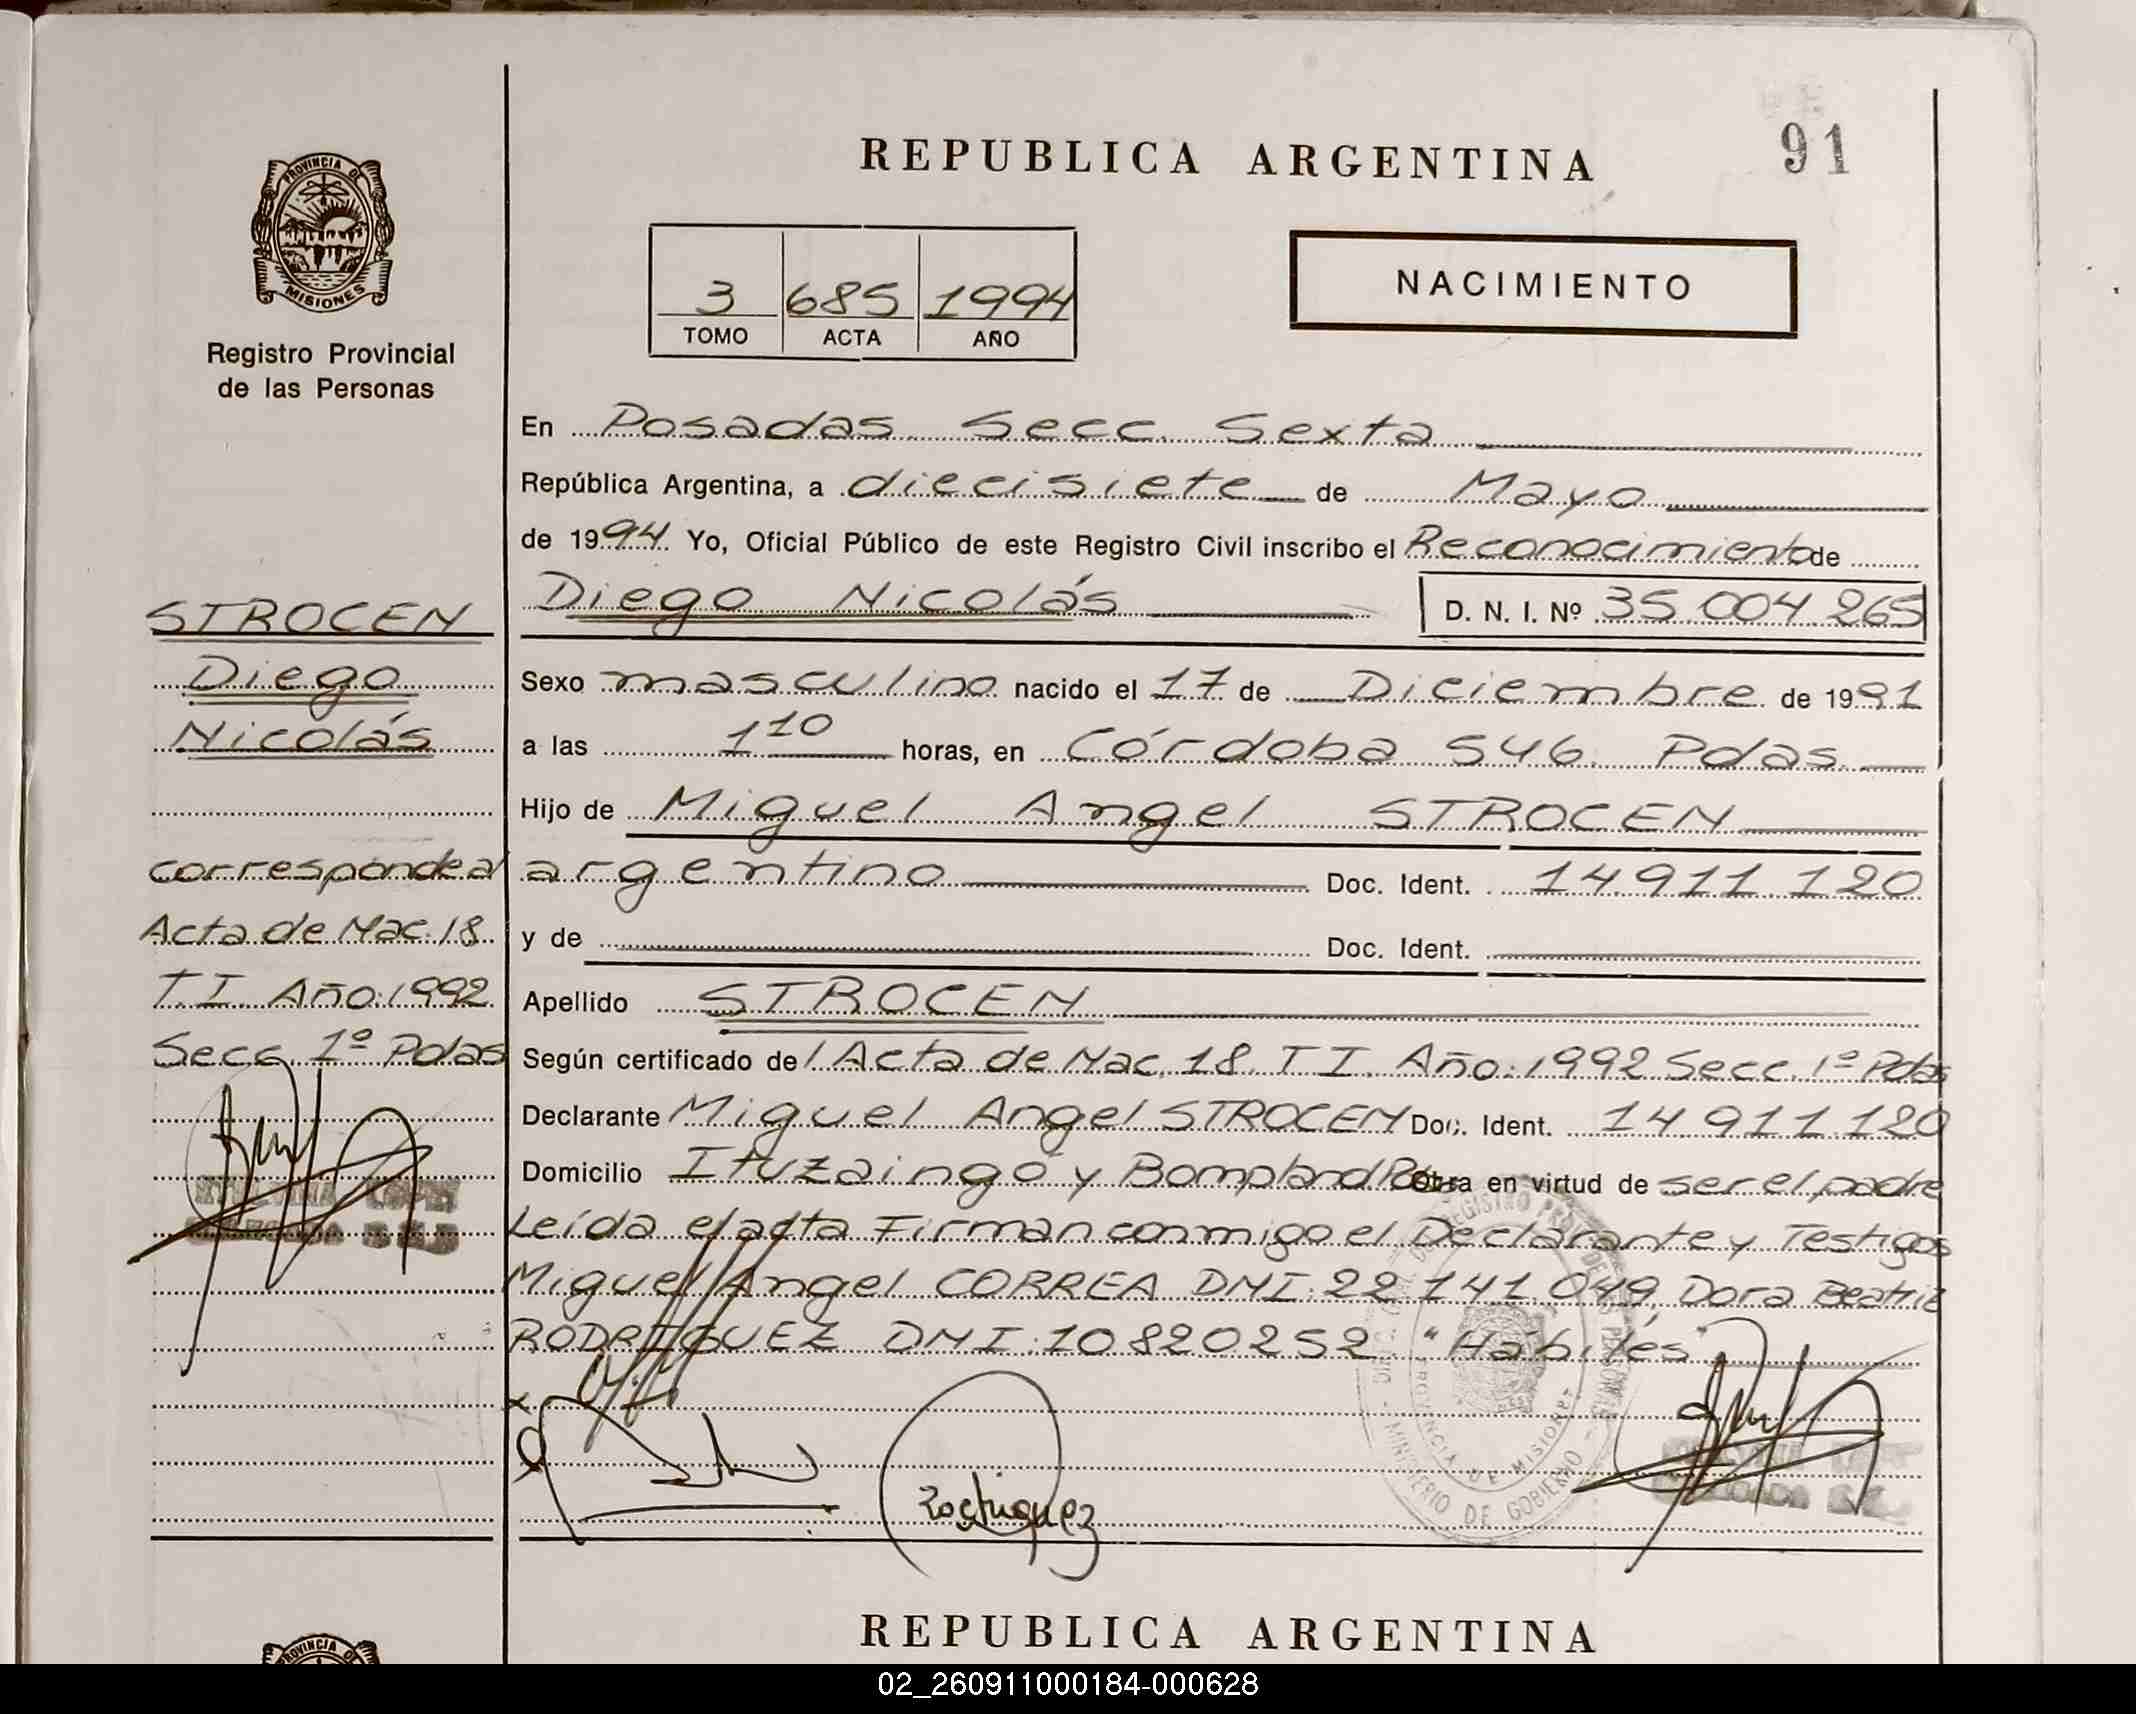 REPUBLICA ARGENTINA
91
PROVINCIA DE
MISIONES
Registro Provincial
de las Personas
3 685 1994
TOMO ACTA AÑO
NACIMIENTO
En Posadas Secc. Sexta
República Argentina, a diecisiete de Mayo
de 1994 Yo, Oficial Público de este Registro Civil inscribo el Reconocimiento de
Diego Nicolás D. N. I. Nº 35.004.265
Sexo masculino nacido el 17 de Diciembre de 1991
a las 1 10 horas, en Córdoba 546. Pdas.
Hijo de Miguel Angel STROCEN
argentino Doc. Ident. 14.911.120
y de Doc. Ident.
Apellido STROCEN
Según certificado del Acta de Nac. 18. T I. Año:1992 Secc. 1º Pdas
Declarante Miguel Angel STROCEN Doc. Ident. 14.911.120
Domicilio Ituzaingó y Bompland Obra en virtud de ser el padre
Leída el acta Firman conmigo el Declarante y Testigos
Miguel Angel CORREA DNI: 22.141.049, Dora Beatriz
RODRIGUEZ DNI:10820252 "Hábiles"
STROCEN
Diego
Nicolás
corresponde al
Acta de Nac. 18
T.I. Año:1992
Secc. 1º Pdas
PROVINCIA DE MISIONES
MINISTERIO DE GOBIERNO
REPUBLICA ARGENTINA
PROVINCIA DE
02_260911000184-000628